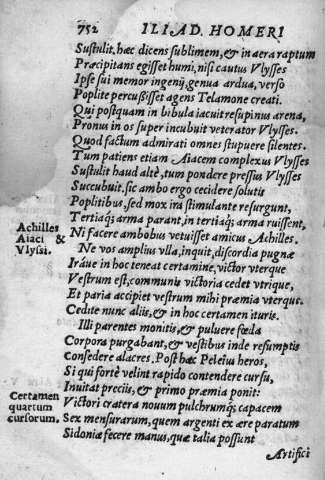 752 ILIAD. HOMERI
Sustulit, hæc dicens sublimem, & in aera raptum
Præcipitans egisset humi, nisi cautus Vlysses
Ipse sui memor ingenij, genua ardua, verso
Poplite percußisset agens Telamone creati.
Qui postquam in bibula iacuit resupinus arena,
Pronus in os super incubuit veterator Vlysses.
Quod factum admirati omnes stupuere silentes.
Tum patiens etiam Aiacem complexus Vlysses
Sustulit haud altè, tum pondere pressus Vlysses
Succubuit. sic ambo ergo cecidere solutis
Poplitibus, sed mox ira stimulante resurgunt,
Tertiaq; arma parant, in tertiaq; arma ruissent,
Achilles
Aiaci &
Vlyssi.
Ni facere ambobus vetuisset amicus Achilles.
Ne vos amplius vlla, inquit, discordia pugnæ
Iráue in hoc teneat certamine, victor vterque
Vestrum est, communis victoria cedet vtrique,
Et paria accipiet vestrum mihi præmia vterque.
Cedite nunc aliis, & in hoc certamen ituris.
Illi parentes monitis, & puluere fœda
Corpora purgabant, & vestibus inde resumptis
Consedere alacres. Post hæc Peleius heros,
Si qui fortè velint rapido contendere cursu,
Inuitat preciis, & primo præmia ponit:
Certamen
quartum
cursorum.
Victori cratera nouum pulchrumq; capacem
Sex mensurarum, quem argenti ex ære paratum
Sidoniæ fecere manus, quæ talia possunt
Artifici